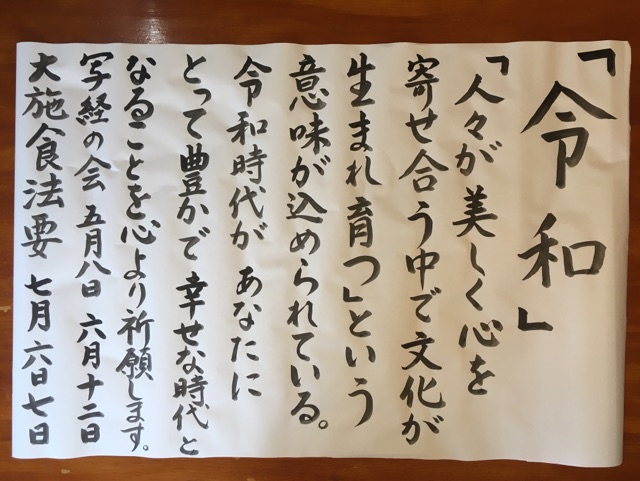 「令和」
「人々が美しく心を
寄せ合う中で文化が
生まれ育つ」という
意味が込められている。
令和時代が あなたに
とって豊かで幸せな時代と
なることを心より祈願します。
写経の会 五月八日 六月十二日
大施食法要 七月六日七日